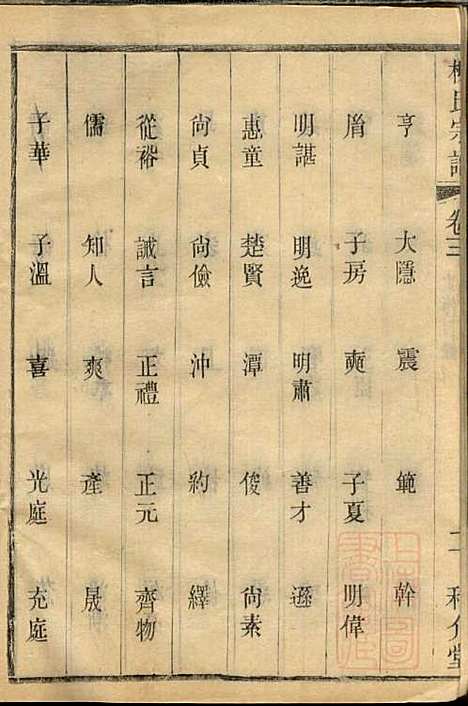 柳氏宗譜 卷三 二 和介堂
亨 大隱 震 範 幹
子房 奭 子夏 明偉
明諶 明逸 明肅 善才 遜
惠童 楚賢 潭 俊 尚素
尚貞 尚儉 沖 約 繹
從裕 誠言 正禮 正元 齊物
儒 知人 爽 產 晟
子華 子溫 喜 光庭 充庭